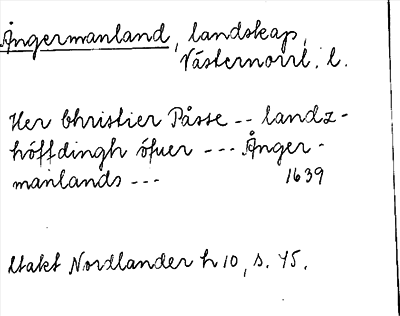 Ångermanland, landskap,
Västernorrl. l.
Her Christier Påsse -- landz-
höffdingh öfuer --- Ånger-
manlands --- 1639
Utakt Nordlander h 10, s. 45.